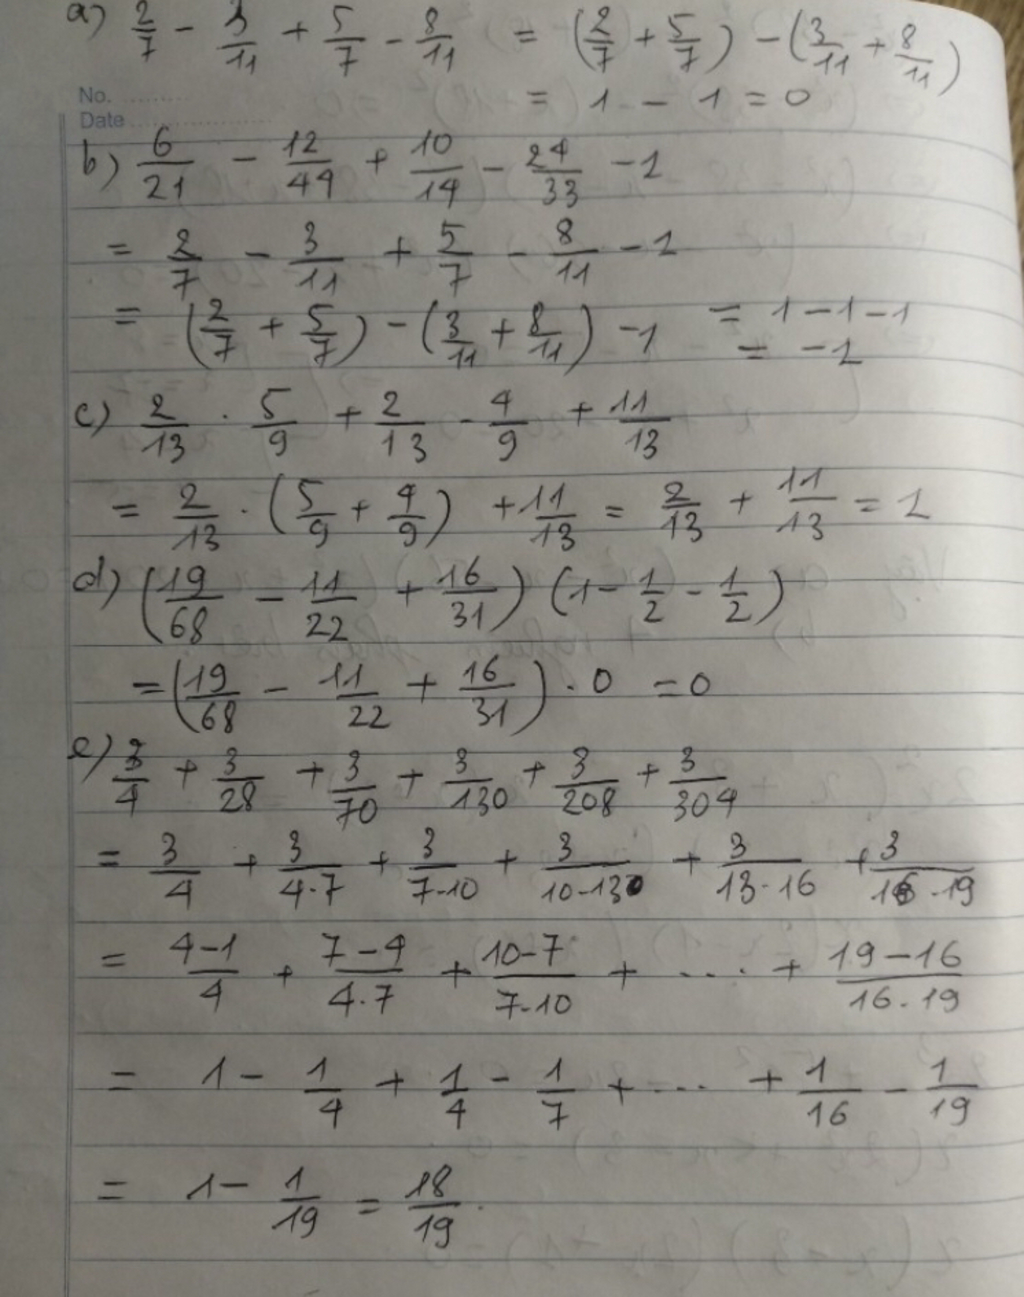 a) 2/7 - 3/11 + 5/7 - 8/11 = (2/7 + 5/7) - (3/11 + 8/11)
= 1 - 1 = 0
No. ..........
Date ....................
b) 6/21 - 12/44 + 10/14 - 24/33 - 1
= 2/7 - 3/11 + 5/7 - 8/11 - 1
= (2/7 + 5/7) - (3/11 + 8/11) - 1 = 1 - 1 - 1
= -1
c) 2/13 . 5/9 + 2/13 - 4/9 + 11/13
= 2/13 . (5/9 + 4/9) + 11/13 = 2/13 + 11/13 = 1
d) (19/68 - 11/22 + 16/31) (1 - 1/2 - 1/2)
= (19/68 - 11/22 + 16/31) . 0 = 0
e) 3/4 + 3/28 + 3/70 + 3/130 + 3/208 + 3/304
= 3/4 + 3/4.7 + 3/7.10 + 3/10.13 + 3/13.16 + 3/16.19
= 4-1/4 + 7-4/4.7 + 10-7/7.10 + .... + 19-16/16.19
= 1 - 1/4 + 1/4 - 1/7 + .... + 1/16 - 1/19
= 1 - 1/19 = 18/19.